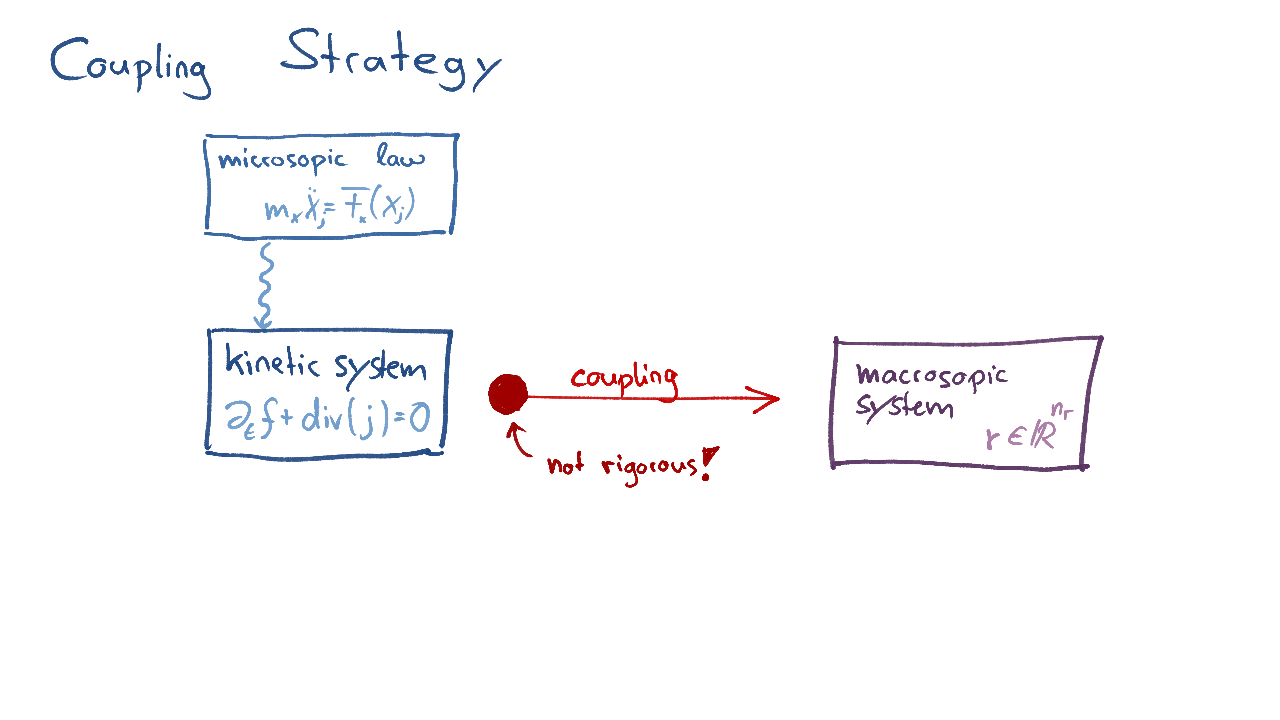 Coupling Strategy
microsopic law
mₓẍⱼ = Fₓ(xⱼ)
kinetic system
∂ₜf + div(j) = 0
coupling
not rigorous!
macrosopic
system
r ∈ ℝⁿʳ